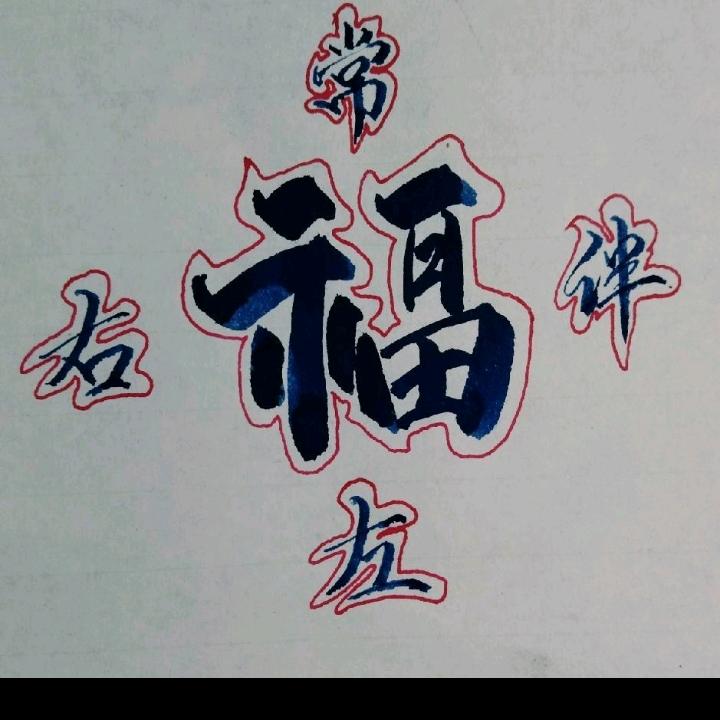 常
福
伴
右
左